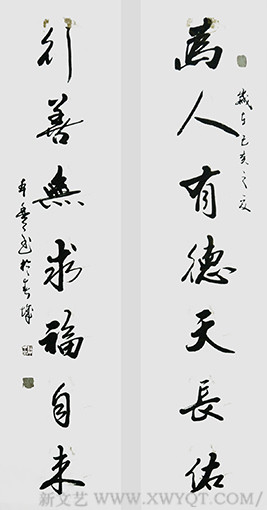 爲人有德天長佑
歲在己亥之夏
行善無求福自来
於春城
新文艺 WWW.XWYQT.COM/